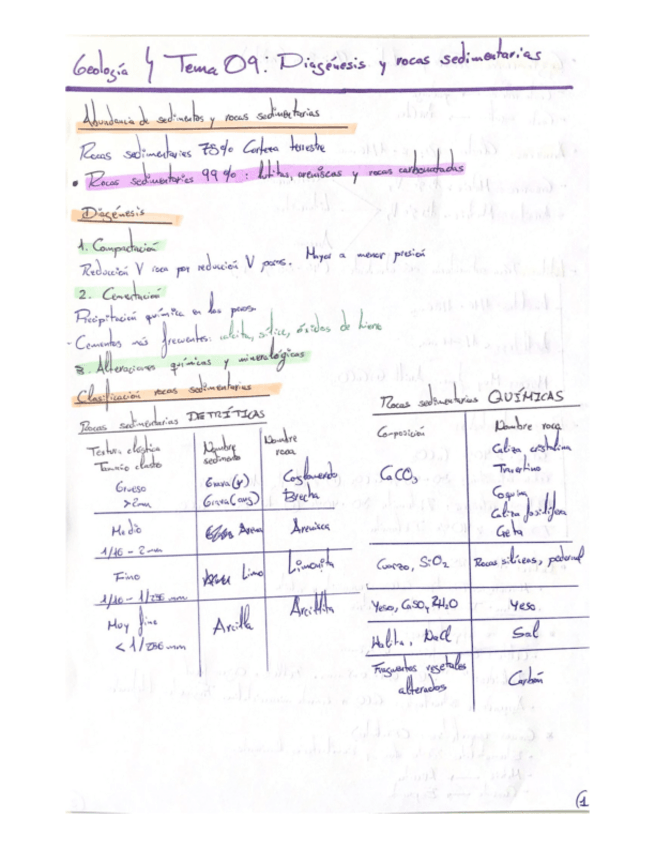 Geología 4 Tema 09: Diagénesis y rocas sedimentarias
Abundancia de sedimentos y rocas sedimentarias
Rocas sedimentarias 75% Corteza terrestre
• Rocas sedimentarias 99%: lutitas, areniscas y rocas carbonatadas
Diagénesis
1. Compactación
Reducción V roca por reducción V poros. Mayor a menor presión
2. Cementación
Precipitación química en los poros.
- Cementos más frecuentes: calcita, sílice, óxidos de hierro
3. Alteraciones químicas y mineralógicas
Clasificación rocas sedimentarias
Rocas sedimentarias DETRÍTICAS
Textura clástica
Tamaño clasto
Nombre
sedimento
Nombre
roca
Grueso
>2mm
Grava (
Grava (ang)
Conglomerado
Brecha
Medio
1/16 - 2mm
Arena
Arenisca
Fino
1/16 - 1/256 mm
Limo
Limonita
Muy fino
< 1/256 mm
Arcilla
Arcillita
Rocas sedimentarias QUÍMICAS
Composición
Nombre roca
CaCO3
Caliza cristalina
Travertino
Coquina
Caliza fosilífera
Creta
Cuarzo, SiO2
Rocas silíceas, pedernal
Yeso, CaSO4 2H2O
Yeso
Halita, NaCl
Sal
Fragmentos vegetales
alterados
Carbón
(1